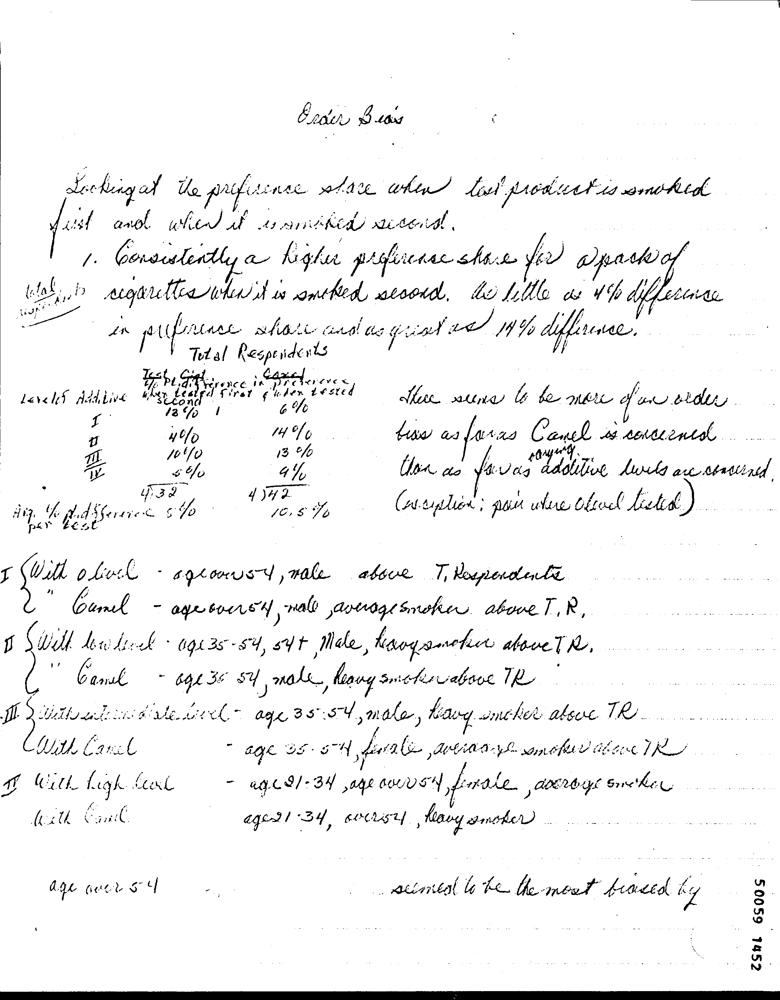 Order Bias
Looking at the preference share when test product is smoked
first and when it is smoked second.
1. Consistently a higher preference share for a pack of
total respondents
cigarettes when it is smoked second. As little as 4% difference
in preference share and as great as 14% difference.
Total Respondents
Test Cigt. Camel
% Pt. difference in preference
when tested first & when tested
second
Level of Additive
I 13% 6%
II 4% 14%
III 10% 13%
IV 5% 9%
4)32 4)42
Avg. % pt. difference 5% 10.5%
per test
There seems to be more of an order
bias as far as Camel is concerned
than as far as varying additive levels are concerned.
(exception: pair where 0 level tested)
I With 0 level - age over 54, male above T. Respondents
" Camel - age over 54, male, average smoker above T.R.
II With low level - age 35-54, 54+, Male, heavy smoker above T.R.
" Camel - age 35 54, male, heavy smoker above TR
III With intermediate level - age 35-54, male, heavy smoker above TR
With Camel - age 35-54, female, average smoker above TR
IV With high level - age 21-34, age over 54, female, average smoker
With Camel age 21-34, over 54, heavy smoker
age over 54 seemed to be the most biased by
50059 1452